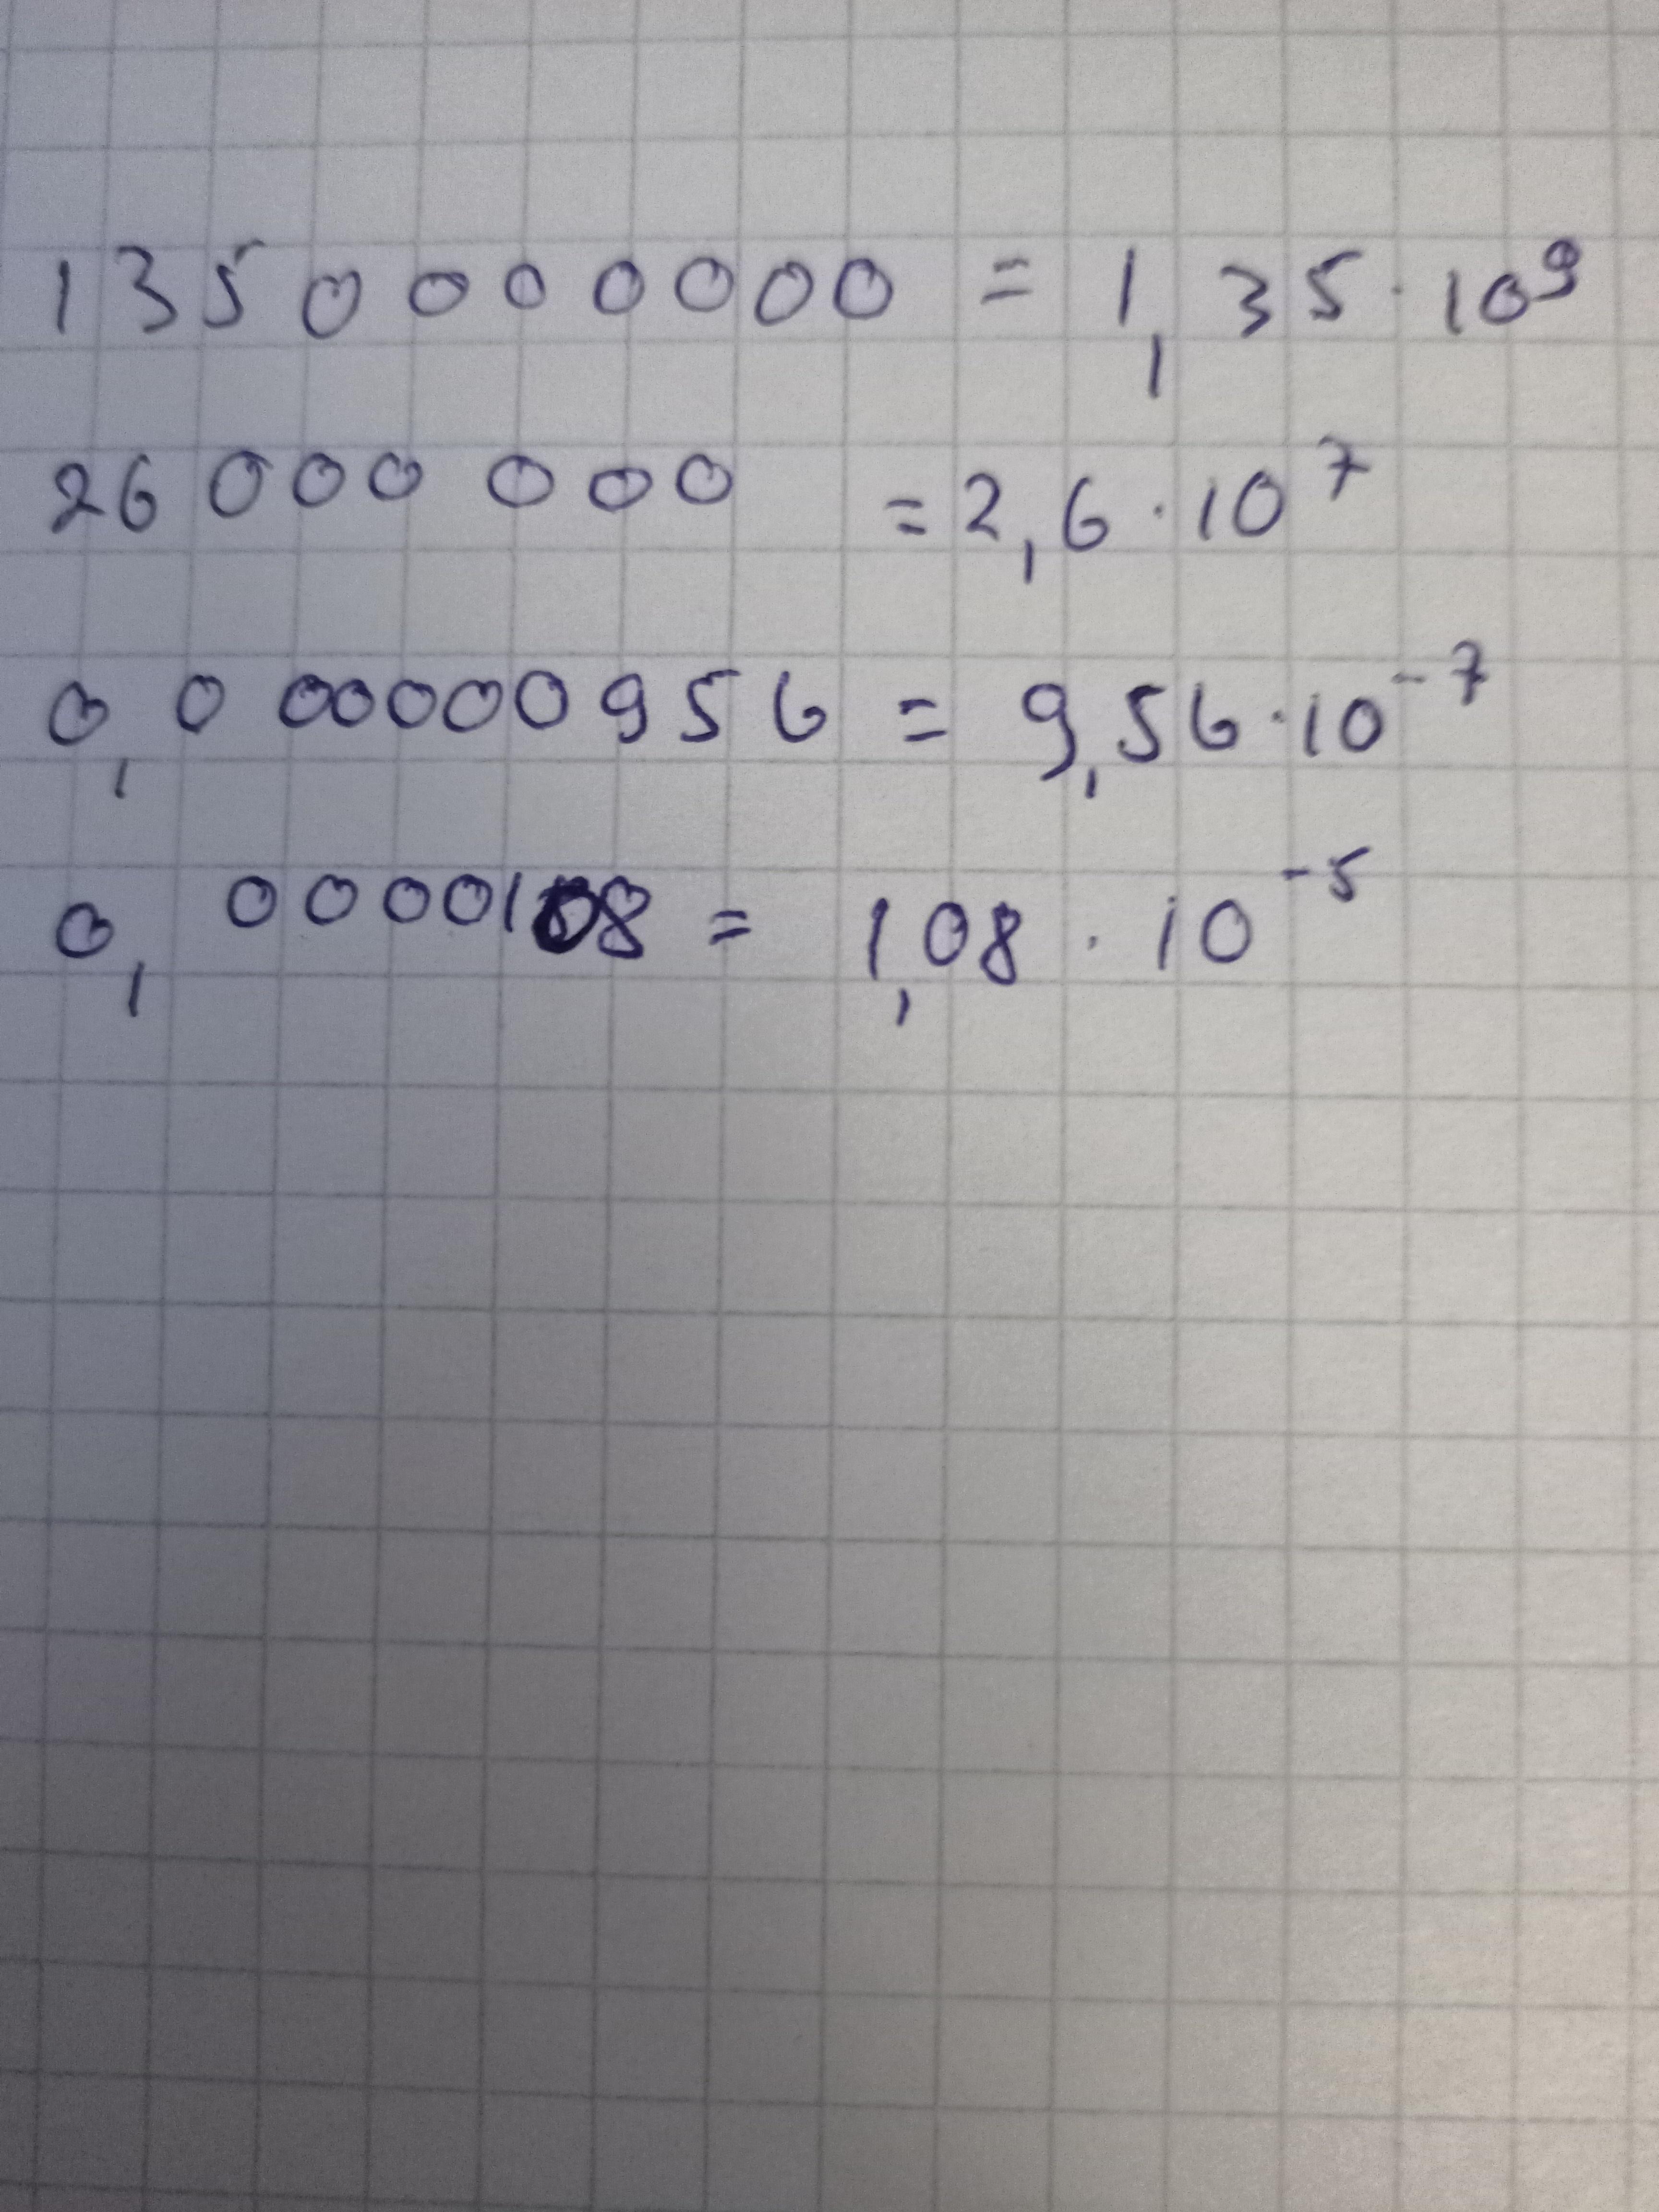 1350000000 = 1,35 · 10⁹
26 000 000 = 2,6 · 10⁷
0,000000956 = 9,56 · 10⁻⁷
0,0000108 = 1,08 · 10⁻⁵